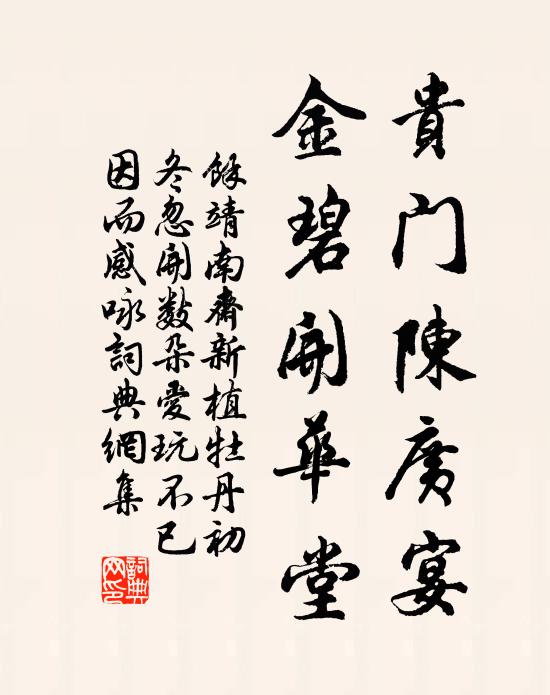 貴門陳廣宴
金碧開華堂
餘靖南齋新植牡丹初
冬忽開數朶愛玩不已
因而感咏詞典網集
詞典
网印